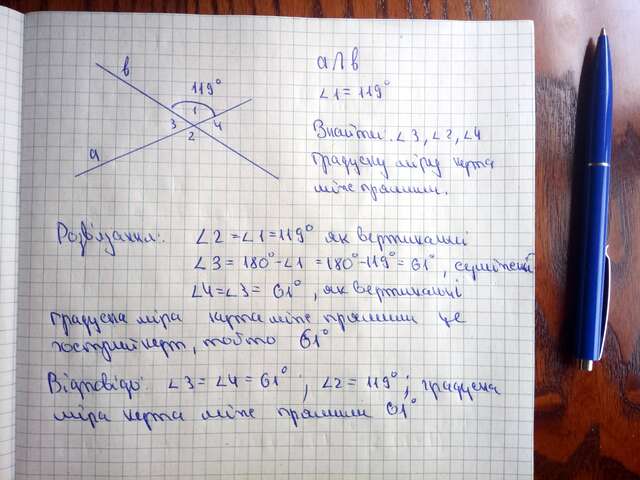 a
b
3
2
1
4
119°
a∩b
∠1=119°
Знайти: ∠3, ∠2, ∠4
Градусну міру кута
між прямими.
Розв'язання:
∠2=∠1=119° як вертикальні
∠3=180°-∠1=180°-119°=61°, суміжний
∠4=∠3=61°, як вертикальні
Градусна міра кута між прямими це
гострий кут, тобто 61°
Відповідь: ∠3=∠4=61°; ∠2=119°; градусна
міра кута між прямими 61°